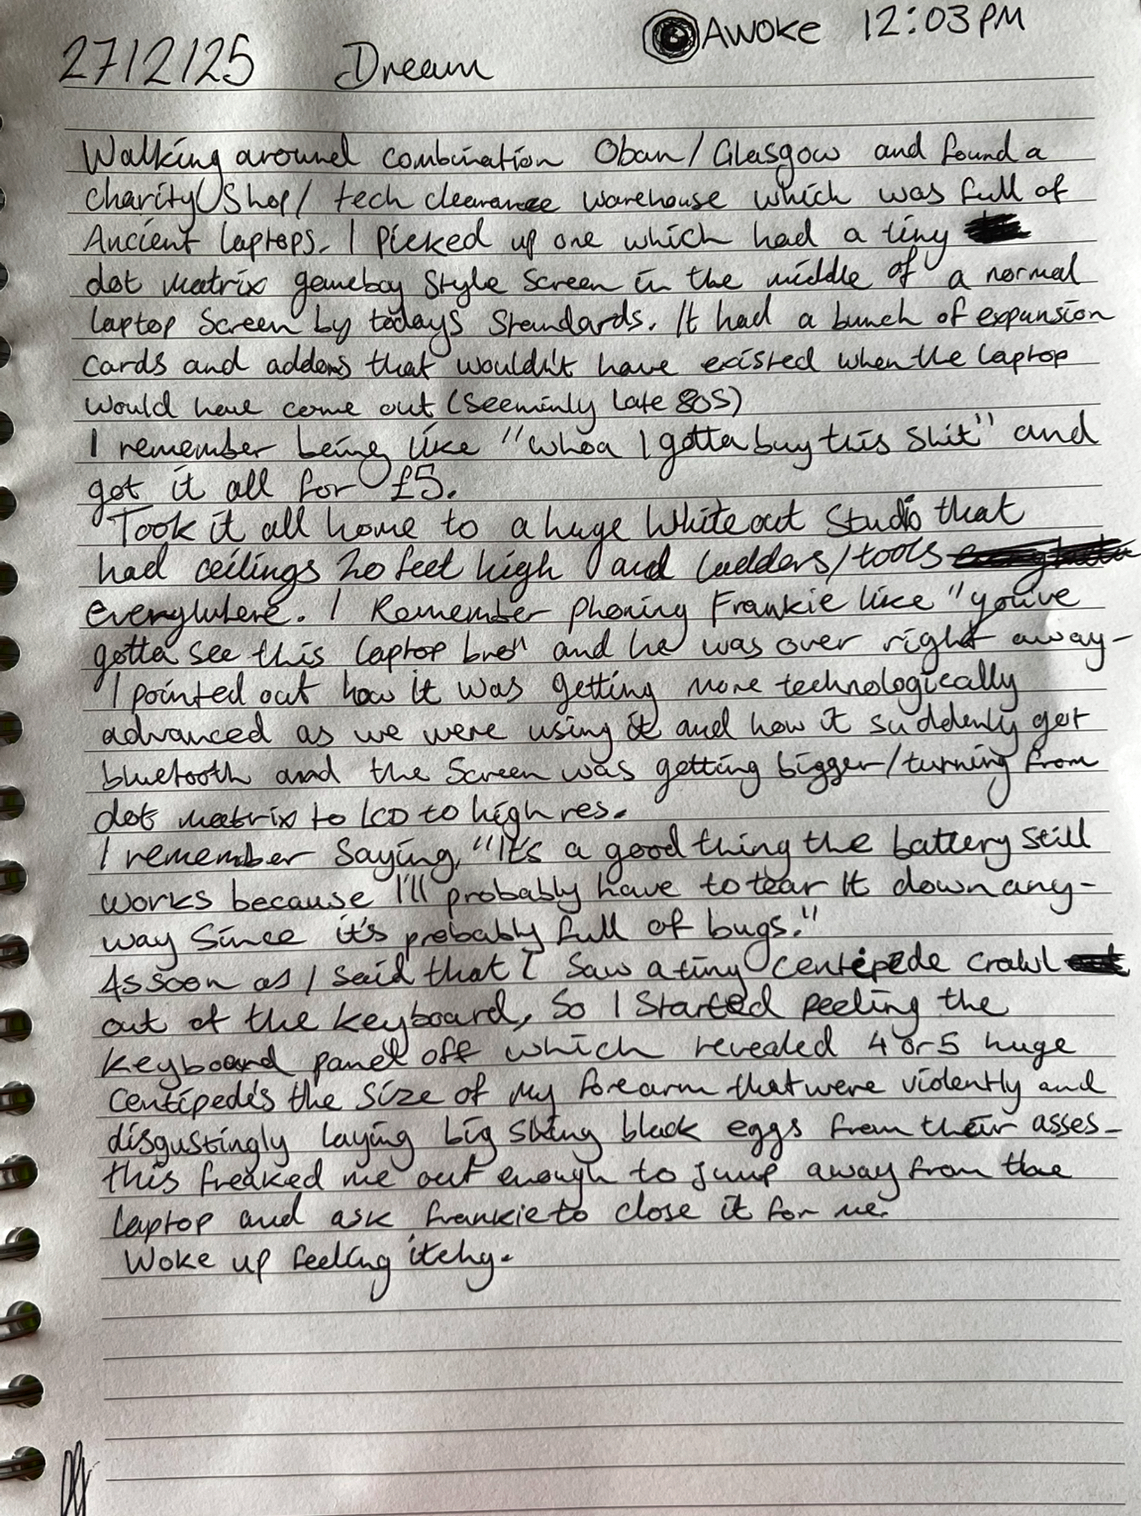 Awoke 12:03PM
27/2/25 Dream
Walking around combination Oban/Glasgow and found a
charity Shop/ tech clearance warehouse which was full of
Ancient laptops. I picked up one which had a tiny
dot matrix gameboy style screen in the middle of a normal
laptop screen by todays standards. It had a bunch of expansion
cards and addons that wouldn't have existed when the laptop
would have come out (seeminly late 80s)
I remember being like "whoa I gotta buy this shit" and
got it all for £5.
Took it all home to a huge Whiteout Studio that
had ceilings 20 feet high and ladders/tools
everywhere. I Remember phoning Frankie like "you've
gotta see this laptop bro" and he was over right away-
I pointed out how it was getting more technologically
advanced as we were using it and how it suddenly got
bluetooth and the screen was getting bigger/turning from
dot matrix to LCD to high res.
I remember saying, "It's a good thing the battery still
works because I'll probably have to tear it down any-
way Since it's probably full of bugs."
As soon as I said that I saw a tiny centipede crawl
out of the keyboard, So I Started peeling the
keyboard panel off which revealed 4 or 5 huge
Centipede's the size of my forearm that were violently and
disgustingly laying big shiny black eggs from their asses-
this freaked me out enough to jump away from the
laptop and ask frankie to close it for me.
Woke up feeling itchy.